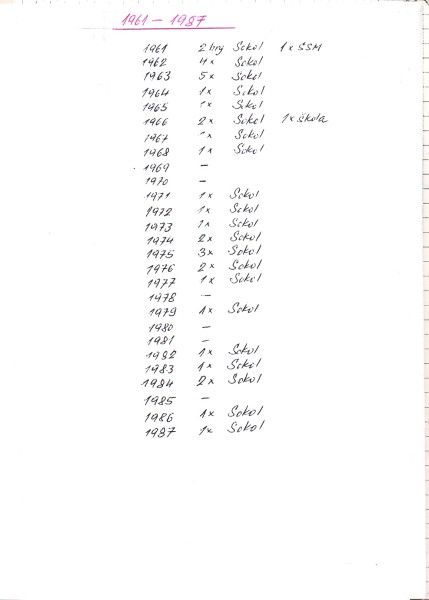 1961 – 1987
1961 2 hry Sokol 1x SSM
1962 4x Sokol
1963 5x Sokol
1964 1x Sokol
1965 1x Sokol
1966 2x Sokol 1x škola
1967 1x Sokol
1968 1x Sokol
1969 –
1970 –
1971 1x Sokol
1972 1x Sokol
1973 1x Sokol
1974 2x Sokol
1975 3x Sokol
1976 2x Sokol
1977 1x Sokol
1978 –
1979 1x Sokol
1980 –
1981 –
1982 1x Sokol
1983 1x Sokol
1984 2x Sokol
1985 –
1986 1x Sokol
1987 1x Sokol